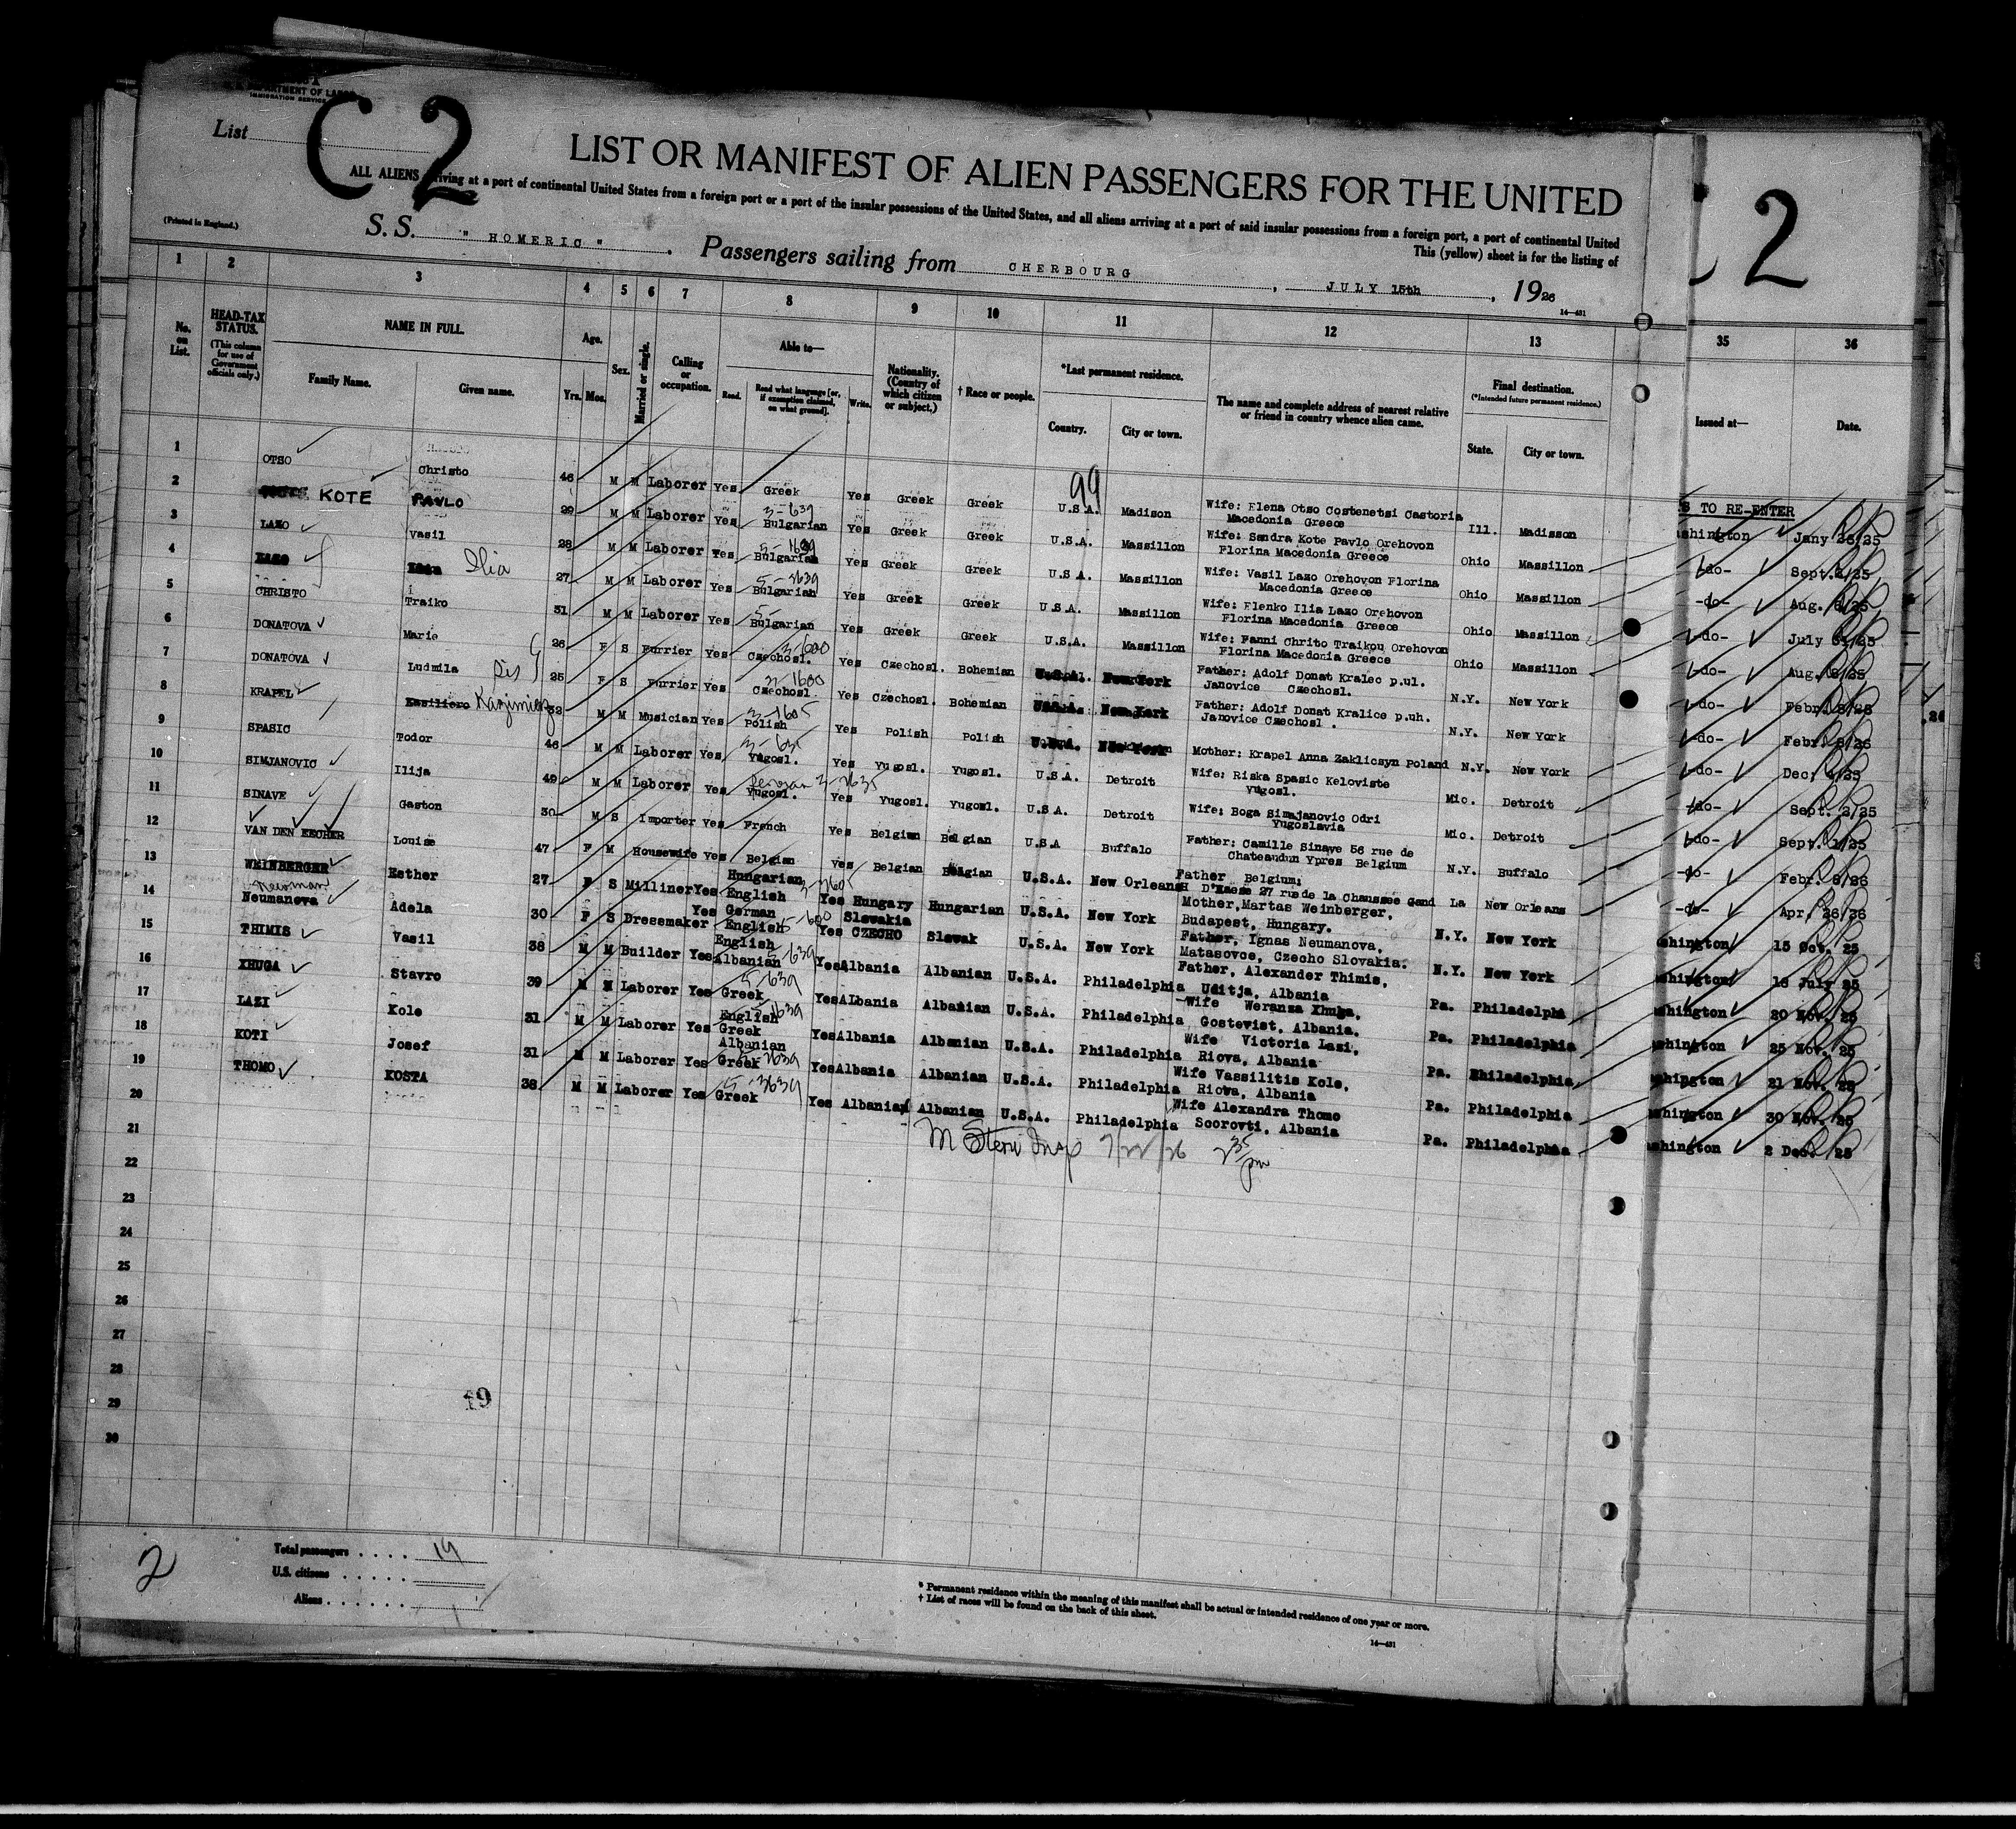 DEPARTMENT OF LABOR
IMMIGRATION SERVICE
List
C 2
LIST OR MANIFEST OF ALIEN PASSENGERS FOR THE UNITED
ALL ALIENS arriving at a port of continental United States from a foreign port or a port of the insular possessions of the United States, and all aliens arriving at a port of said insular possessions from a foreign port, a port of continental United
This (yellow) sheet is for the listing of
(Printed in England.)
S. S. " HOMERIC " . Passengers sailing from CHERBOURG , JULY 15th , 1926
14—431
2
1 2 3 4 5 6 7 8 9 10 11 12 13 35 36
No. on List.
HEAD-TAX STATUS. (This column for use of Government officials only.)
NAME IN FULL. Family Name. Given name.
Age. Yrs. Mos.
Sex.
Married or single.
Calling or occupation.
Able to— Read. Read what language [or, if exemption claimed, on what ground]. Write.
Nationality. (Country of which citizen or subject.)
† Race or people.
*Last permanent residence. Country. City or town.
The name and complete address of nearest relative or friend in country whence alien came.
Final destination. (*Intended future permanent residence.) State. City or town.
Issued at— Date.
99
S TO RE-ENTER
1 OTSO Christo 46 M M Laborer Yes Greek Yes Greek Greek U.S.A. Madison Wife: Elena Otso Costenetsi Castoria Macedonia Greece Ill. Madisson shington Jany 26/25
2 KOTE PAVLO 29 M M Laborer Yes Bulgarian Yes Greek Greek U.S.A. Massillon Wife: Sandra Kote Pavlo Orehovon Florina Macedonia Greece Ohio Massillon -do- Sept.
3 LAZO Vasil 28 M M Laborer Yes Bulgarian Yes Greek Greek U.S.A. Massillon Wife: Vasil Lazo Orehovon Florina Macedonia Greece Ohio Massillon -do- Aug.
4 Ilia 27 M M Laborer Yes Bulgarian Yes Greek Greek U.S.A. Massillon Wife: Elenko Ilia Lazo Orehovon Florina Macedonia Greece Ohio Massillon -do- July
5 CHRISTO Traiko 31 M M Laborer Yes Bulgarian Yes Greek Greek U.S.A. Massillon Wife: Fanni Chrito Traikou Orehovon Florina Macedonia Greece Ohio Massillon -do- Aug.
6 DONATOVA Marie 26 F S Furrier Yes Czechosl. Yes Czechosl. Bohemian New York Father: Adolf Donat Kralec p.ul. Janovice Czechosl. N.Y. New York -do- Febr.
7 DONATOVA Ludmila 25 F S Furrier Yes Czechosl. Yes Czechosl. Bohemian New York Father: Adolf Donat Kralice p.uh. Janovice Czechosl . N.Y. New York -do- Febr.
8 KRAPEL Kazimierz M M Musician Yes Polish Yes Polish Polish U.S.A. Mother: Krapel Anna Zakliczyn Poland N.Y. New York -do- Dec.
9 SPASIC Todor 46 M M Laborer Yes Yugosl. Yes Yugosl. Yugosl. U.S.A. Detroit Wife: Riska Spasic Keloviste Yugosl. Mic. Detroit -do- Sept. 2/25
10 SIMJANOVIC Ilija 49 M M Laborer Yes Yugosl. Yes Yugosl. Yugosl. U.S.A. Detroit Wife: Boga Simajanovic Odri Yugoslavia Mic. Detroit -do- Sept. 1/25
11 SINAVE Gaston 30 M S Importer Yes French Yes Belgian Belgian U.S.A Buffalo Father: Camille Sinave 56 rue de Chateaudun Ypres Belgium N.Y. Buffalo -do- Febr.
12 VAN DEN EECHER Louise 47 F M Housewife Yes Belgian Yes Belgian Belgian U.S.A. New Orleans Father Belgium: 27 rue de la Chaussee Gand La New Orleans -do- Apr. 26/26
13 WEINBERGER Esther 27 F S Milliner Yes Hungarian English Yes Hungary Hungarian U.S.A. New York Mother, Martas Weinberger, Budapest, Hungary. N.Y. New York shington 15 Oct. 25
14 Neuman Neumanova Adela 30 F S Dressmaker Yes German English Yes Slovakia CZECHO Slovak U.S.A. New York Father, Ignas Neumanova, Matasovce, Czecho Slovakia. N.Y. New York shington 18 July 25
15 THIMIS Vasil 38 M M Builder Yes English Albanian Yes Albania Albanian U.S.A. Philadelphia Father, Alexander Thimis, Uditja, Albania Pa. Philadelphia shington 20 Nov. 25
16 XHUGA Stavro 39 M M Laborer Yes Greek Yes Albania Albanian U.S.A. Philadelphia Wife Weranza Xhuga, Gostevist, Albania. Pa. Philadelphia shington 25 Nov. 25
17 LAZI Kole 31 M M Laborer Yes English Greek Yes Albania Albanian U.S.A. Philadelphia Wife Victoria Lazi, Riova, Albania Pa. Philadelphia shington 21 Nov. 25
18 KOTI Josef 31 M M Laborer Yes Albanian Greek Yes Albania Albanian U.S.A. Philadelphia Wife Vassilitis Kole, Riova, Albania Pa. Philadelphia shington 30 Nov. 25
19 THOMO KOSTA 38 M M Laborer Yes Greek Yes Albanian Albanian U.S.A. Philadelphia Wife Alexandra Thomo Scorovti, Albania Pa. Philadelphia shington 2 Dec. 25
20
21 M Stern Insp 7/22/26 2 35 pm
22
23
24
25
26
27
28
29
30
19
2
Total passengers . . . . 19
U.S. citizens . . . . .
Aliens . . . . . .
* Permanent residence within the meaning of this manifest shall be actual or intended residence of one year or more.
† List of races will be found on the back of this sheet.
14—431